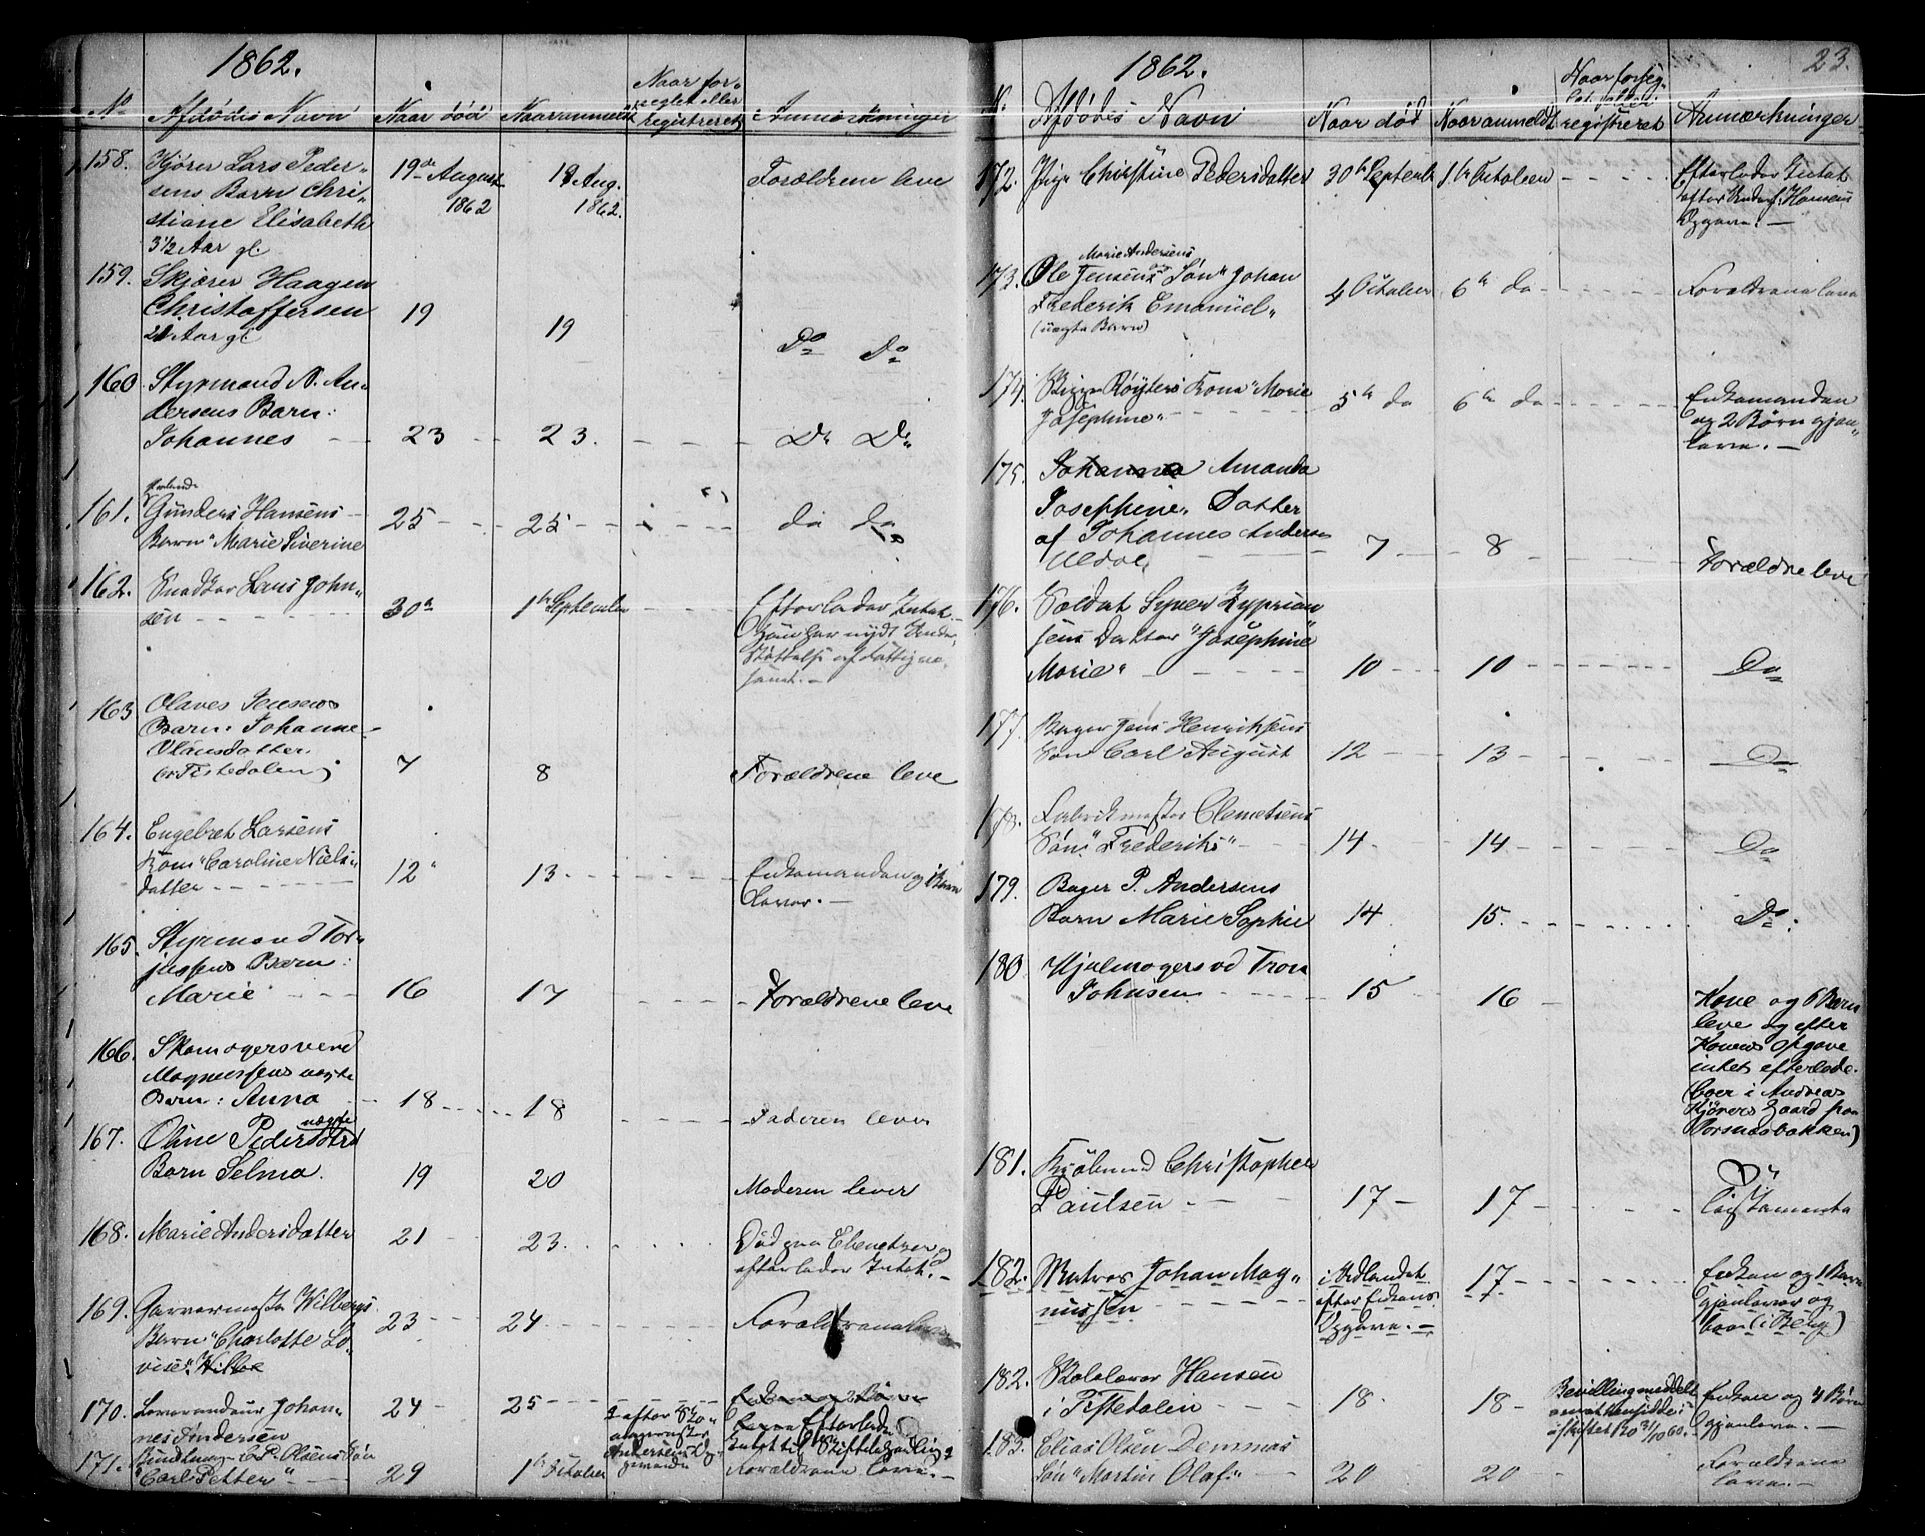 1862.
No
Afdødes Navn
Naar død
Naar anmeldt
Naar for-
seglet eller
registreret
Anmærkninger
158.
Kjører Lars Peder-
sens Barn Chri-
stiane Elisabeth
3 1/2 Aar gl.
19de August
1862
19 Aug.
1862.
Forældrene leve
159.
Skjærer Haagen
Christoffersen
21 Aar gl.
19
19
Do Do
160
Styrmand N. An-
dersens Barn:
Johannes
23
23.
Do Do
161.
Gunders Hansens
Barn "Marie Siverine
25
25
do do
162.
Snedker Lars John-
sen
30te
1ste September
Efterlader Intet.
Han har nydt Under-
støttelse af Fattigvæ-
senet.
163
Olaves Jensens
Barn: Johanne
Olausdatter.
(Tistedalen)
7
8
Forældrene leve
164.
Engebret Larsens
Kone "Caroline Niels-
datter
12
13
Enkemanden og 1 Barn
lever.
165.
Styrmand Tor-
jussens Barn:
Marie
16
17
Forældrene leve
166.
Skomagersvend
Magnussens uægte
Barn: Anna
18
18
Faderen lever
167.
Oline Pedersdtrs
uægte
Barn Selma.
19
20
Moderen lever
168.
Marie Andersdatter
21
23.
Død paa Ebenetzer og
efterlader Intet.
169.
Garvermester Wilbergs
Barn "Charlotte Lo-
vise"
23
24
Forældrene leve
170.
Johan-
nes Andersen
24
25
Efterlader
Intet til Skiftebehandling
171.
C. P. Olsens Søn
"Carl Petter"
29
1ste October
Forældrene leve.
23.
1862.
N.
Afdødes Navn
Naar død
Naar anmeldt
Naar forseg-
let eller
registreret
Anmærkninger
172.
Pige Christine Pedersdatter
30te Septemb
1ste Octoben
Efterlader Intet
efter Anders Hansens
Opgave.
173.
Marie Andersens
Ole Jensens Søn "Johan
Frederik Emanuel"
(uægte Barn)
4 October
6te do
Forældrene leve
174.
Røyters Kone "Marie
Josephine"
5te do
6te do
Enkemanden
og 2 Børn gjen-
leve.
175.
Johanna Amanda
Josephine" Datter
af Johannes Andersen
7
8
Forældrene leve
176.
Soldat Syver Zyprian
sens Datter "Josephine
Marie"
10
10
Do
177.
Bager Jens Henriksens
Søn Carl August
12
13
Do
178.
Fabrikmester Clemetsens
Søn "Frederik"
14
14
Do
179.
Bager P. Andersens
Barn Marie Sophie
14
15.
Do.
180
Hjulmagersvd Tron
Johnsen
15
16
Kone og 6 Børn
leve og efter
Konens Opgave
intet efterlade.
(boer i Andreas
Kjørers Gaard paa
Porsnæsbakken)
181.
Kjøbmand Christopher
Paulsen
17
17
182.
Matros Johan Mag-
nussen
i Udlandet
efter Enkens
Opgave.
17
Enken og 1 Barn
gjenlever og
boer (i Berg)
182.
Skolelærer Hansen
i Tistedalen
18.
18
Bevilling meddelt
Enken og 4 Børn
gjenleve.
183.
Elias Olsen Demmas
Søn "Martin Olaf"
20
20
Forældrene
leve.